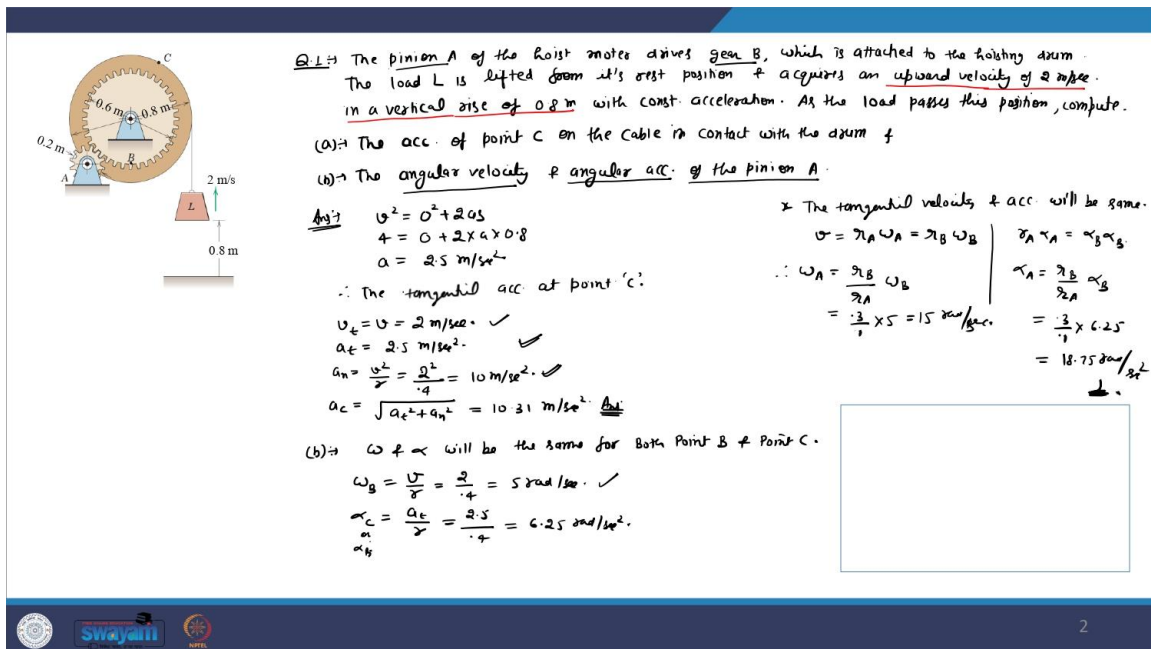 Q.1:→ The pinion A of the hoist moter drives gear B, which is attached to the hoisting drum.
The load L is lifted from it's rest position & acquires an upward velocity of 2 m/sec.
in a vertical rise of 0.8 m with const. acceleration. As the load passes this position, compute.
(a):→ The acc. of point C on the cable in contact with the drum &
(b)→ The angular velocity & angular acc. of the pinion A.
C
0.6 m
0.8 m
0.2 m
B
A
2 m/s
L
0.8 m
Ans:→ v² = 0² + 2as
4 = 0 + 2×a×0.8
a = 2.5 m/sec²
∴ The tangentil acc. at point 'c'.
v_t = v = 2 m/sec. ✓
a_t = 2.5 m/sec². ✓
a_n = v²/r = 2²/.4 = 10 m/se². ✓
a_c = √(a_t² + a_n²) = 10.31 m/se² Ans.
(b):→ ω & α will be the same for Both Point B & Point C.
ω_B = v/r = 2/.4 = 5 rad/sec. ✓
α_c = a_t/r = 2.5/.4 = 6.25 rad/sec².
or
α_B
* The tangentil velocity & acc. will be same.
v = r_A ω_A = r_B ω_B
∴ ω_A = r_B/r_A ω_B
= .3/.1 × 5 = 15 rad/sec.
r_A α_A = α_B α_B.
α_A = r_B/r_A α_B
= .3/.1 × 6.25
= 18.75 rad/se²
swayam
NPTEL
2